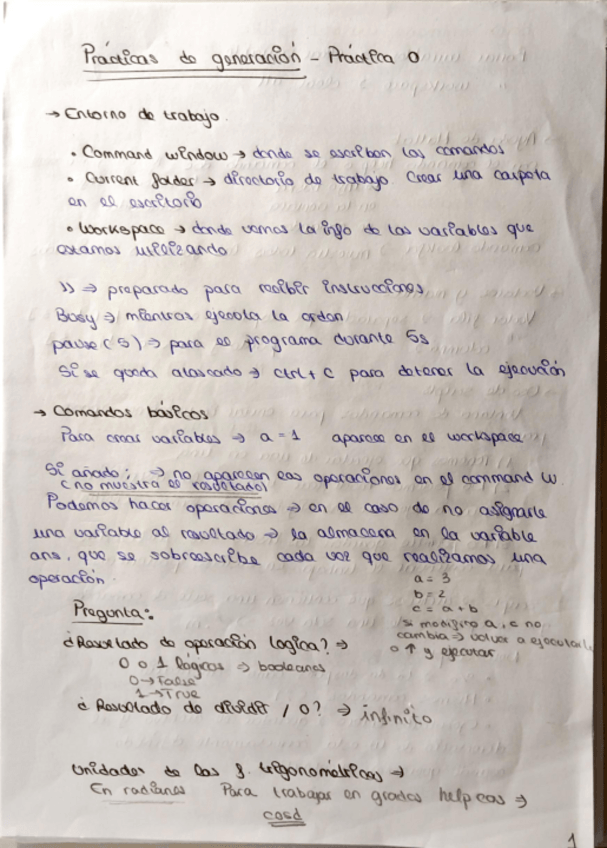 Prácticas de generación - Práctica 0
→ Entorno de trabajo.
• Command window → donde se escriben los comandos
• Current folder → directorio de trabajo. Crear una carpeta
en el escritorio
• Workspace → donde vemos la info de las variables que
estamos utilizando
>> → preparado para recibir instrucciones
Busy → mientras ejecuta la orden
pause(5) → para el programa durante 5s
Si se queda atascado → ctrl + c para detener la ejecución
→ Comandos básicos
Para crear variables → a = 1 aparece en el workspace
Si añado ; → no aparecen las operaciones en el command w.
(no muestra el resultado)
Podemos hacer operaciones → en el caso de no asignarle
una variable al resultado → la almacena en la variable
ans, que se sobreescribe cada vez que realizamos una
operación.
a = 3
b = 2
c = a + b
si modifico a, c no
cambia → volver a ejecutarla
o ↑ y ejecutar
Pregunta:
¿Resultado de operación logica? →
0 o 1 lógicos → booleanos
0 → False
1 → True
¿Resultado de dividir / 0? → infinito
Unidades de las f. trigonométricas →
En radianes Para trabajar en grados help cos →
cosd
1